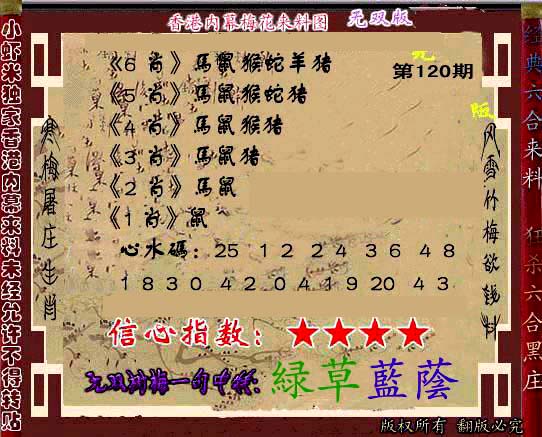 香港内幕梅花来料图 无双版
第120期
《6 肖》馬鼠猴蛇羊猪
《5 肖》馬鼠猴蛇猪
《4 肖》馬鼠猴猪
《3 肖》馬鼠猪
《2 肖》馬鼠
《1 肖》鼠
心水碼: 25 12 24 36 48
18 30 42 20 41 9 20 43
信心指数: ★★★★
无双刘梅一句中特: 緑草藍蔭
版权所有 翻版必究
小虾米独家香港内幕来料未经允许不得转贴
寒梅屠庄生肖
风雪竹梅欲钱料
经典六合来料 狂杀六合黑庄